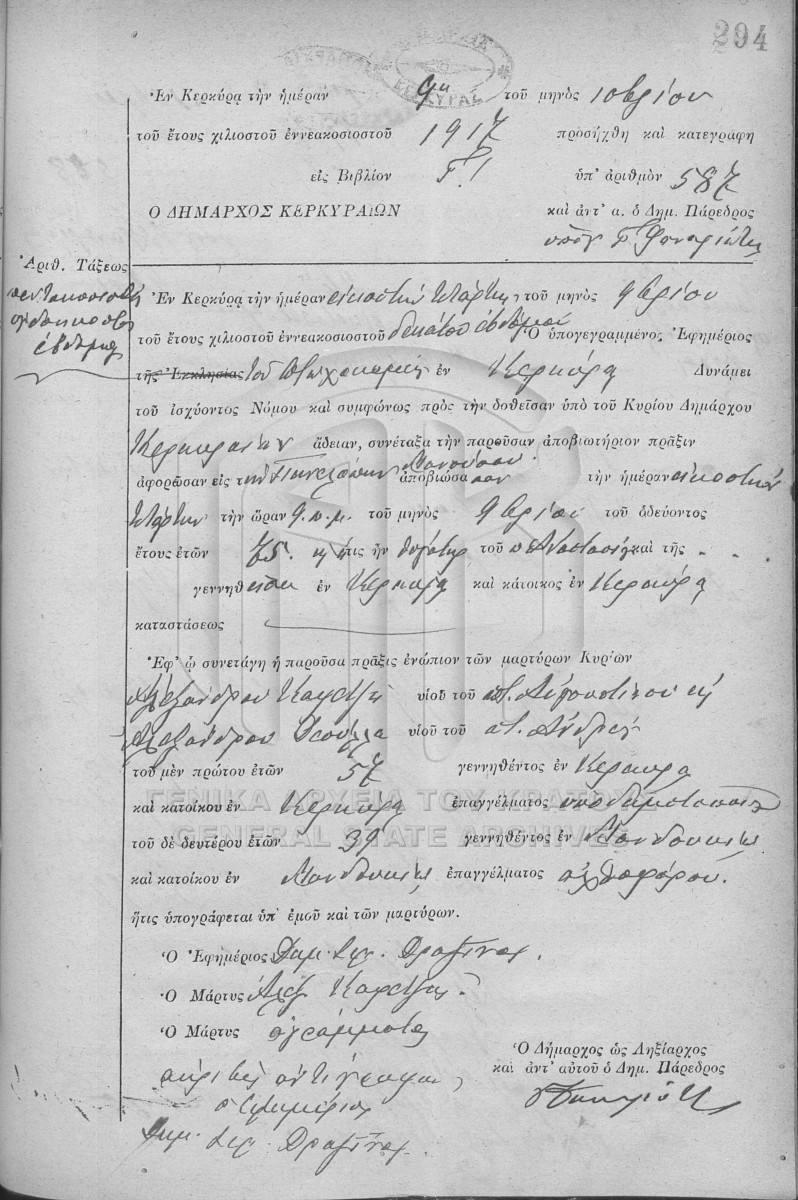 294
Ἐν Κερκύρᾳ τὴν ἡμέραν 9ην τοῦ μηνὸς 10βρίου
τοῦ ἔτους χιλιοστοῦ ἐννεακοσιοστοῦ 1917 προσήχθη καὶ κατεγράφη
εἰς Βιβλίον Γ! ὑπ' ἀριθμὸν 587
Ὁ ΔΗΜΑΡΧΟΣ ΚΕΡΚΥΡΑΙΩΝ καὶ ἀντ' α. ὁ Δημ. Πάρεδρος
Ἀριθ. Τάξεως
πεντακοσιοστὴ
ὀγδοηκοστὴ
ἑβδόμη
Ἐν Κερκύρᾳ τὴν ἡμέραν εἰκοστὴν τετάρτην τοῦ μηνὸς 9βρίου
τοῦ ἔτους χιλιοστοῦ ἐννεακοσιοστοῦ δεκάτου ἑβδόμου Ὁ ὑπογεγραμμένος Ἐφημέριος
τῆς Ἐκκλησίας τοῦ Πτωχοκομείου ἐν Κερκύρᾳ Δυνάμει
τοῦ ἰσχύοντος Νόμου καὶ συμφώνως πρὸς τὴν δοθεῖσαν ὑπὸ τοῦ Κυρίου Δημάρχου
Κερκυραίων ἄδειαν, συνέταξα τὴν παροῦσαν ἀποβιωτήριον πρᾶξιν
ἀφορῶσαν εἰς τὴν Πηνελόπην ἀποβιώσασαν τὴν ἡμέραν εἰκοστὴν
τετάρτην τὴν ὥραν 9 π.μ. τοῦ μηνὸς 9βρίου τοῦ ὁδεύοντος
ἔτους ἐτῶν 75. ἥτις ἦν θυγάτηρ τοῦ π. Ἀναστασίου καὶ τῆς . .
γεννηθεῖσα ἐν Κερκύρᾳ καὶ κάτοικος ἐν Κερκύρᾳ
καταστάσεως
Ἐφ' ᾧ συνετάγη ἡ παροῦσα πρᾶξις ἐνώπιον τῶν μαρτύρων Κυρίων
Ἀλεξάνδρου υἱοῦ τοῦ π. Αὐγουστίνου κ
Ἀλεξάνδρου υἱοῦ τοῦ π. Ἀνδρέα
τοῦ μὲν πρώτου ἐτῶν 57 γεννηθέντος ἐν Κερκύρᾳ
καὶ κατοίκου ἐν Κερκύρᾳ ἐπαγγέλματος ὑποδηματοποιοῦ
τοῦ δὲ δευτέρου ἐτῶν 39 γεννηθέντος ἐν Μανδουκίῳ
καὶ κατοίκου ἐν Μανδουκίῳ ἐπαγγέλματος ἀχθοφόρου.
ἥτις ὑπογράφεται ὑπ' ἐμοῦ καὶ τῶν μαρτύρων.
Ὁ Ἐφημέριος
Ὁ Μάρτυς Ἀλέξ
Ὁ Μάρτυς ἀγράμματος
Ὁ Δήμαρχος ὡς Ληξίαρχος
καὶ ἀντ' αὐτοῦ ὁ Δημ. Πάρεδρος
ἀκριβὲς ἀντίγραφον
ὁ ἐφημέριος
ΓΕΝΙΚΑ ΑΡΧΕΙΑ ΤΟΥ ΚΡΑΤΟΥΣ
GENERAL STATE ARCHIVES